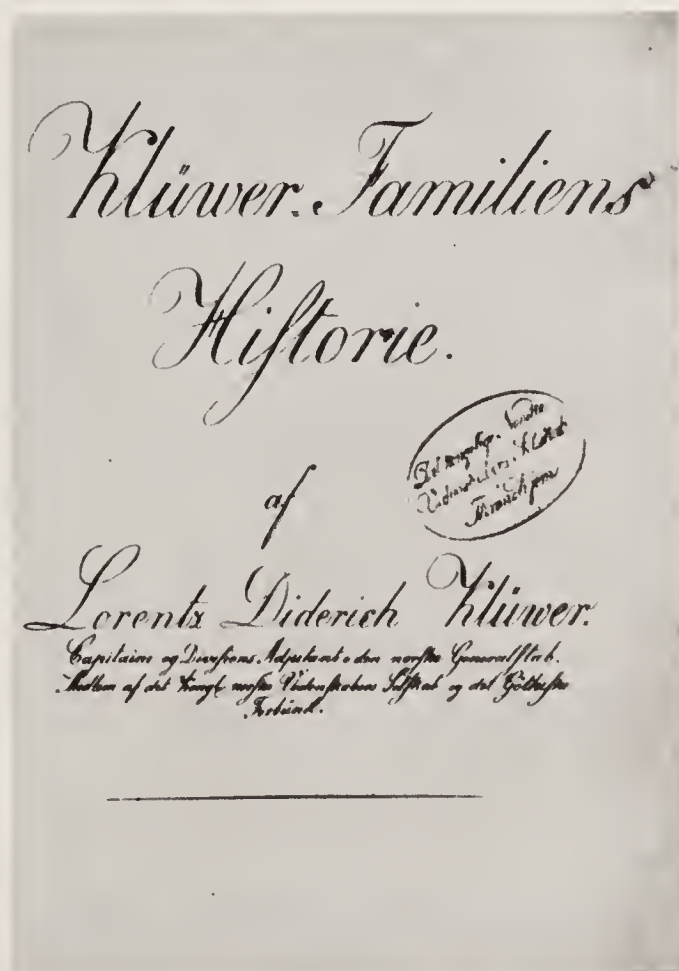 Klüwer. Familiens
Hiſtorie.
Det kongelige Norske
Videnskabers Selskab
Trondhjem
af
Lorentz Diderich Klüwer.
Capitaine og Divisions Adjutant i den norſke Generalſtab.
Medlem af det kongl: norſke Videnſkabers Selſkab og det Göthiſke
Forbund.